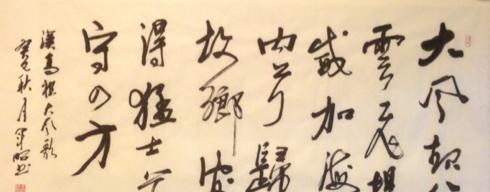 大风起兮
雲飛揚
威加海
内兮歸
故鄉安
得猛士兮
守四方
漢高祖大风歌
秋月